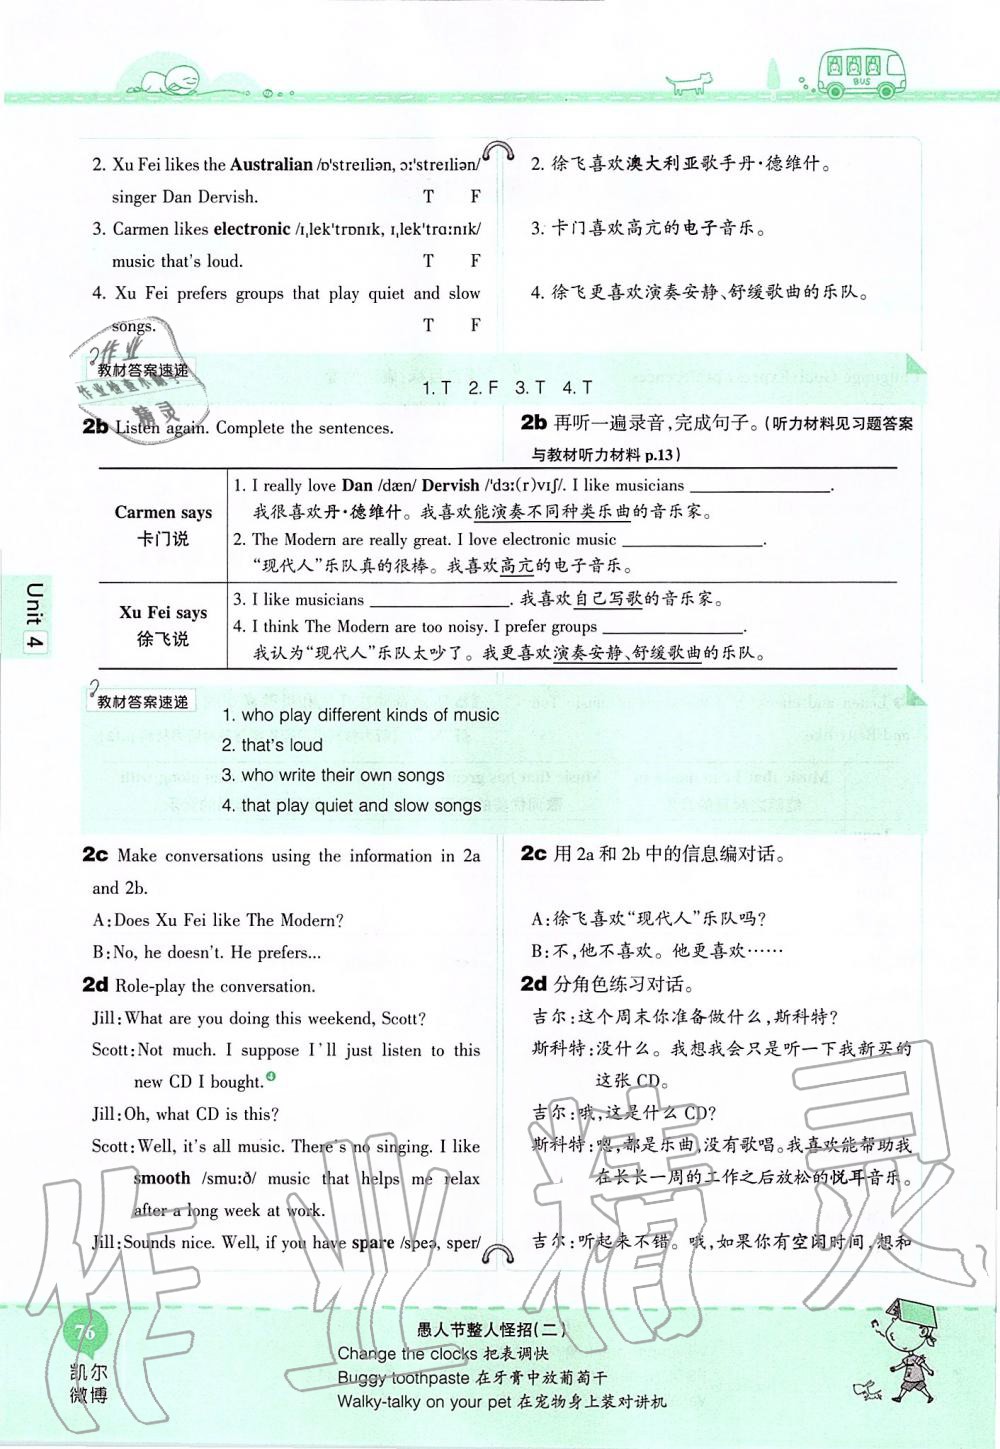 BUS
2. Xu Fei likes the Australian /ɒ'streɪliən, ɔː'streɪliən/
singer Dan Dervish. T F
3. Carmen likes electronic /ɪˌlek'trɒnɪk, ɪˌlek'trɑːnɪk/
music that's loud. T F
4. Xu Fei prefers groups that play quiet and slow
songs. T F
2. 徐飞喜欢澳大利亚歌手丹·德维什。
3. 卡门喜欢高亢的电子音乐。
4. 徐飞更喜欢演奏安静、舒缓歌曲的乐队。
教材答案速递
1. T 2. F 3. T 4. T
2b Listen again. Complete the sentences.
2b 再听一遍录音,完成句子。(听力材料见习题答案
与教材听力材料 p.13)
Carmen says
卡门说
1. I really love Dan /dæn/ Dervish /'dɜː(r)vɪʃ/. I like musicians ______________.
我很喜欢丹·德维什。我喜欢能演奏不同种类乐曲的音乐家。
2. The Modern are really great. I love electronic music ______________.
“现代人”乐队真的很棒。我喜欢高亢的电子音乐。
Xu Fei says
徐飞说
3. I like musicians ______________. 我喜欢自己写歌的音乐家。
4. I think The Modern are too noisy. I prefer groups ______________.
我认为“现代人”乐队太吵了。我更喜欢演奏安静、舒缓歌曲的乐队。
Unit 4
教材答案速递
1. who play different kinds of music
2. that's loud
3. who write their own songs
4. that play quiet and slow songs
2c Make conversations using the information in 2a
and 2b.
A:Does Xu Fei like The Modern?
B:No, he doesn't. He prefers...
2d Role-play the conversation.
Jill:What are you doing this weekend, Scott?
Scott:Not much. I suppose I'll just listen to this
new CD I bought.④
Jill:Oh, what CD is this?
Scott:Well, it's all music. There's no singing. I like
smooth /smuːð/ music that helps me relax
after a long week at work.
Jill:Sounds nice. Well, if you have spare /speə, sper/
2c 用 2a 和 2b 中的信息编对话。
A:徐飞喜欢“现代人”乐队吗?
B:不,他不喜欢。他更喜欢……
2d 分角色练习对话。
吉尔:这个周末你准备做什么,斯科特?
斯科特:没什么。我想我会只是听一下我新买的
这张 CD。
吉尔:哦,这是什么 CD?
斯科特:嗯,都是乐曲,没有歌唱。我喜欢能帮助我
在长长一周的工作之后放松的悦耳音乐。
吉尔:听起来不错。哦,如果你有空闲时间,想和
作业精灵
76
凯尔
微博
愚人节整人怪招(二)
Change the clocks 把表调快
Buggy toothpaste 在牙膏中放葡萄干
Walky-talky on your pet 在宠物身上装对讲机